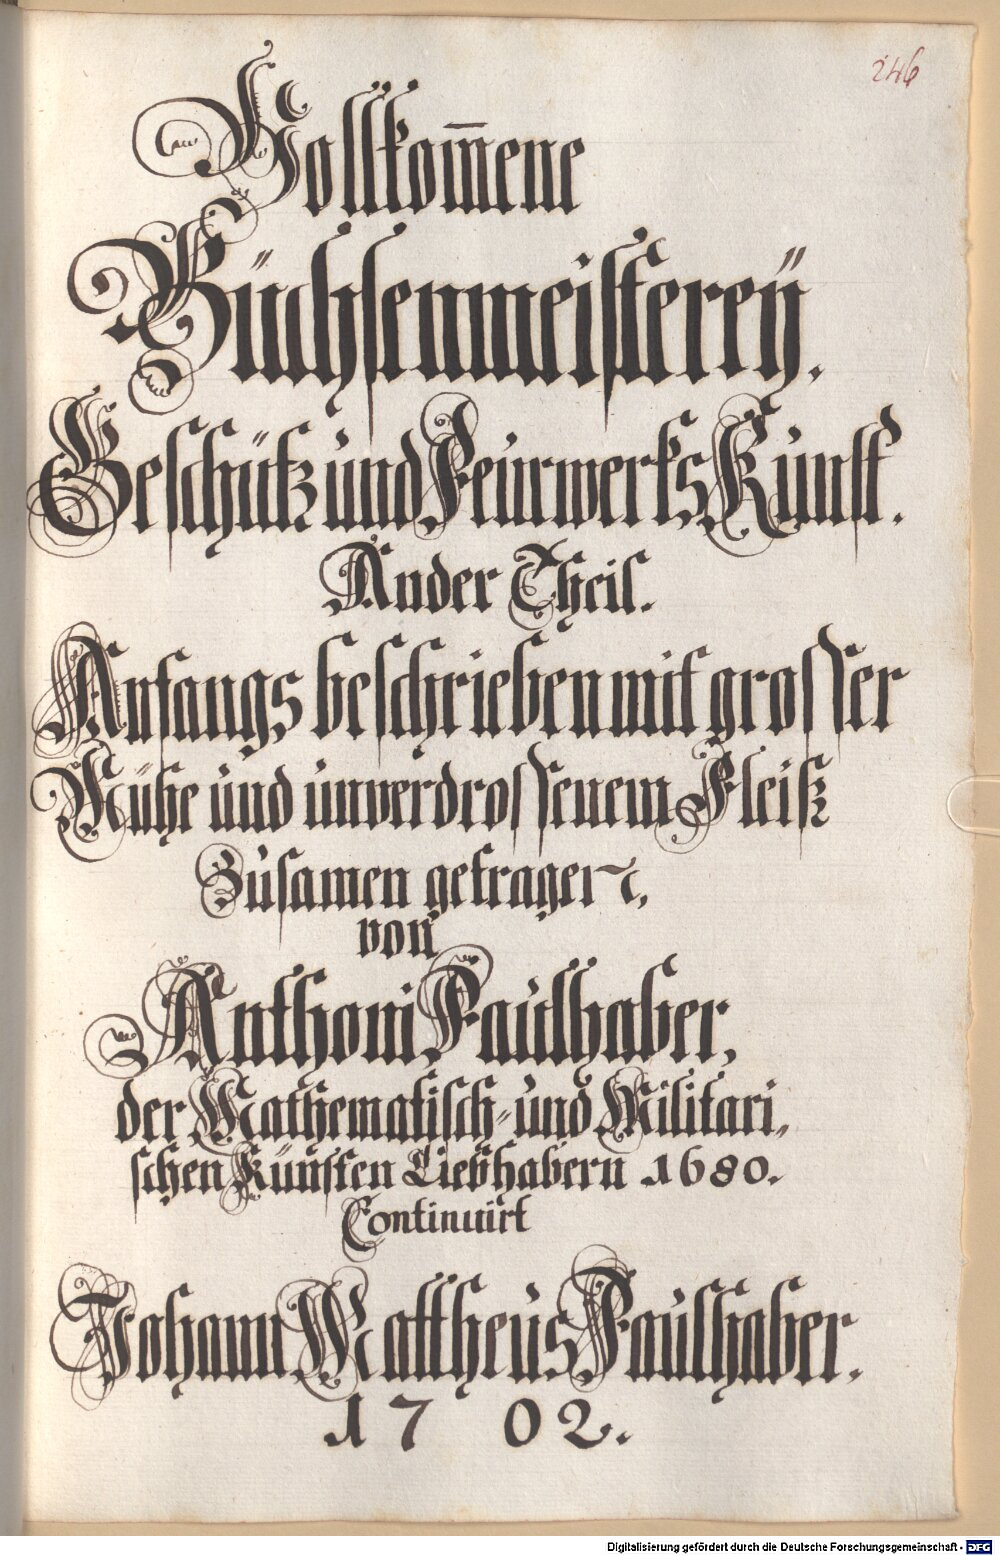 246
Vollkom̄ene
Büchsenmeistereÿ.
Geschütz und Feürwerks Kunst.
Ander Theil.
Anfangs beschrieben mit grosser
Mühe und unverdrossenem Fleiß
Zusamen getragen,
von
Anthoni Faulhaber,
der Mathematisch- und Militari,
schen Künsten Liebhabern 1680.
Continuirt
Johann Mattheus Faulhaber.
1702.
Digitalisierung gefördert durch die Deutsche Forschungsgemeinschaft - DFG